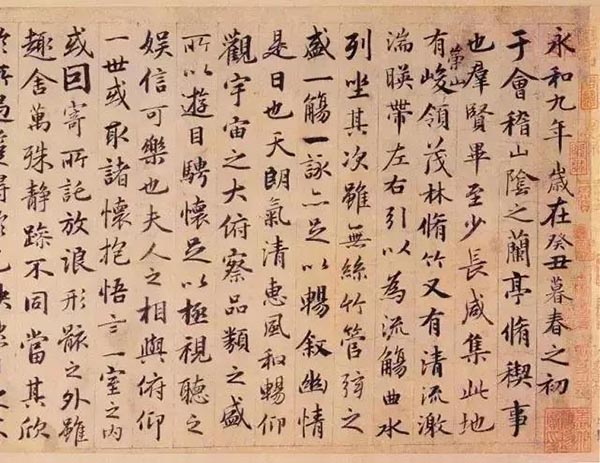 永和九年歲在癸丑暮春之初
于會稽山陰之蘭亭脩稧事
也羣賢畢至少長咸集此地
有崇山峻領茂林脩竹又有清流激
湍暎帶左右引以為流觴曲水
列坐其次雖無絲竹管弦之
盛一觴一詠亦足以暢敘幽情
是日也天朗氣清惠風和暢仰
觀宇宙之大俯察品類之盛
所以遊目騁懷足以極視聽之
娛信可樂也夫人之相與俯仰
一世或取諸懷抱悟言一室之內
或因寄所託放浪形骸之外雖
趣舍萬殊静躁不同當其欣